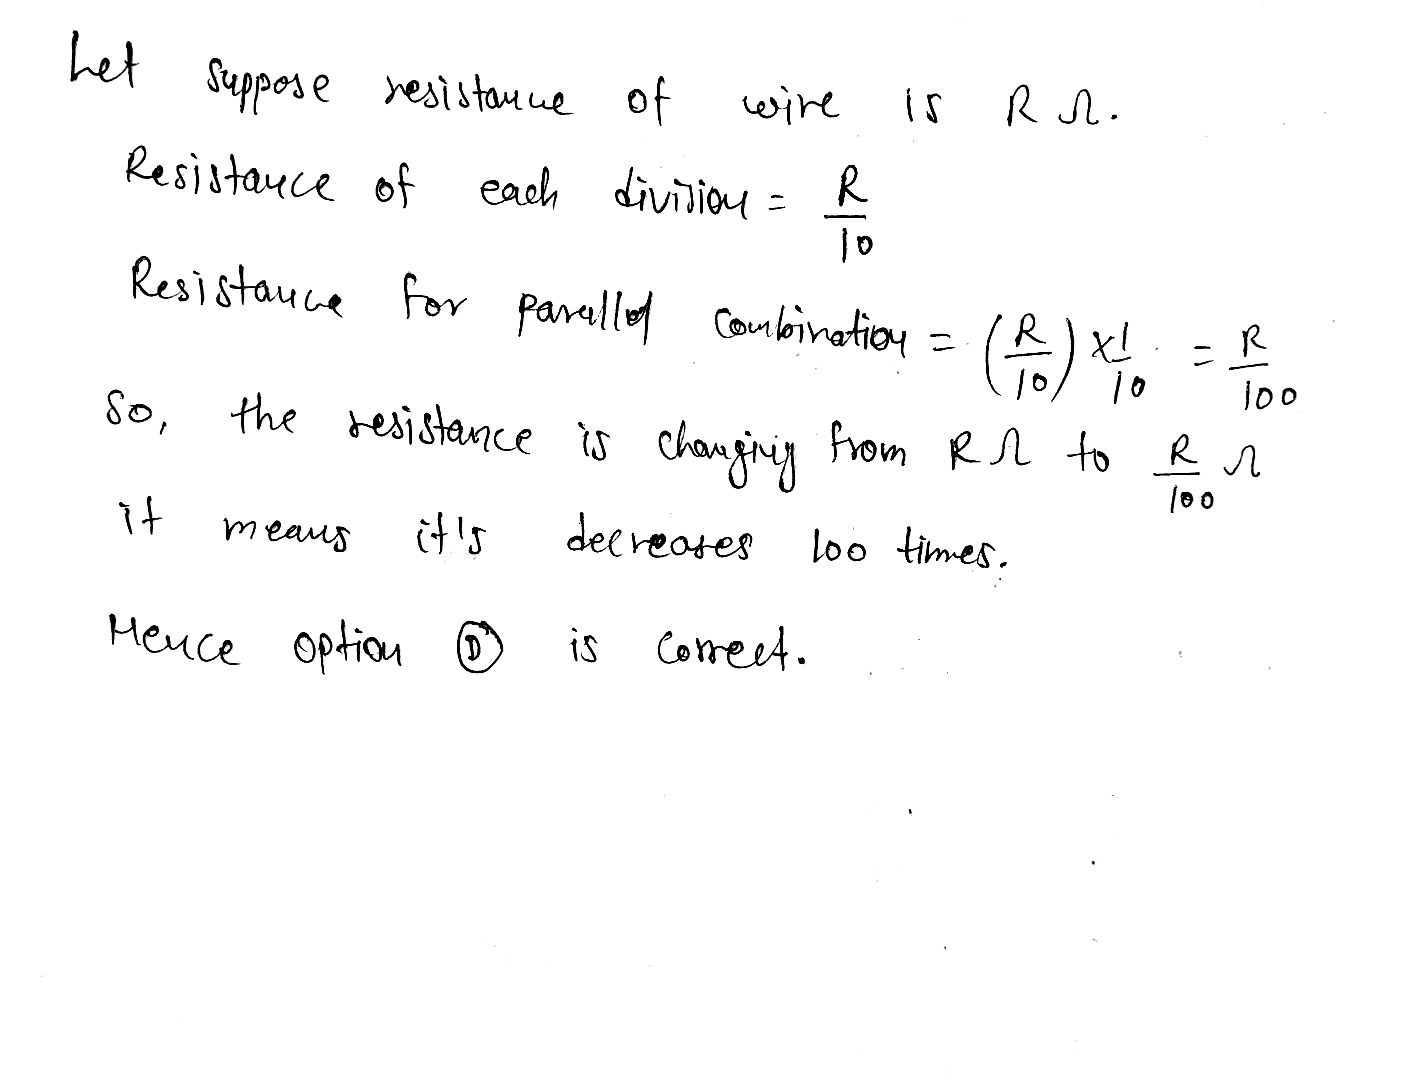 Let suppose resistance of wire is R Ω.
Resistance of each division = R/10
Resistance for parallel combination = (R/10) x 1/10 = R/100
So, the resistance is changing from R Ω to R/100 Ω
it means it's decreases 100 times.
Hence option Ⓓ is correct.